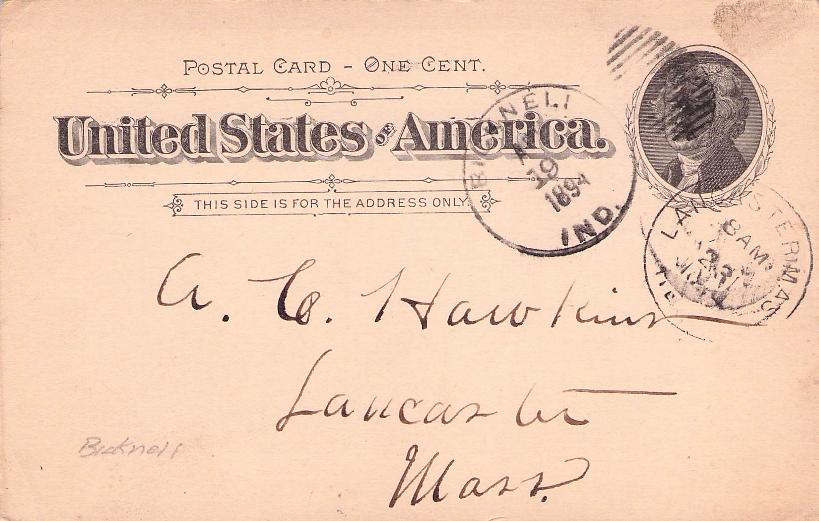 POSTAL CARD - ONE CENT.
United States of America.
THIS SIDE IS FOR THE ADDRESS ONLY.
BICKNELL
19
1894
IND.
LANCASTER MASS
8AM
A. C. Hawkins
Lancaster
Mass.
Bicknell